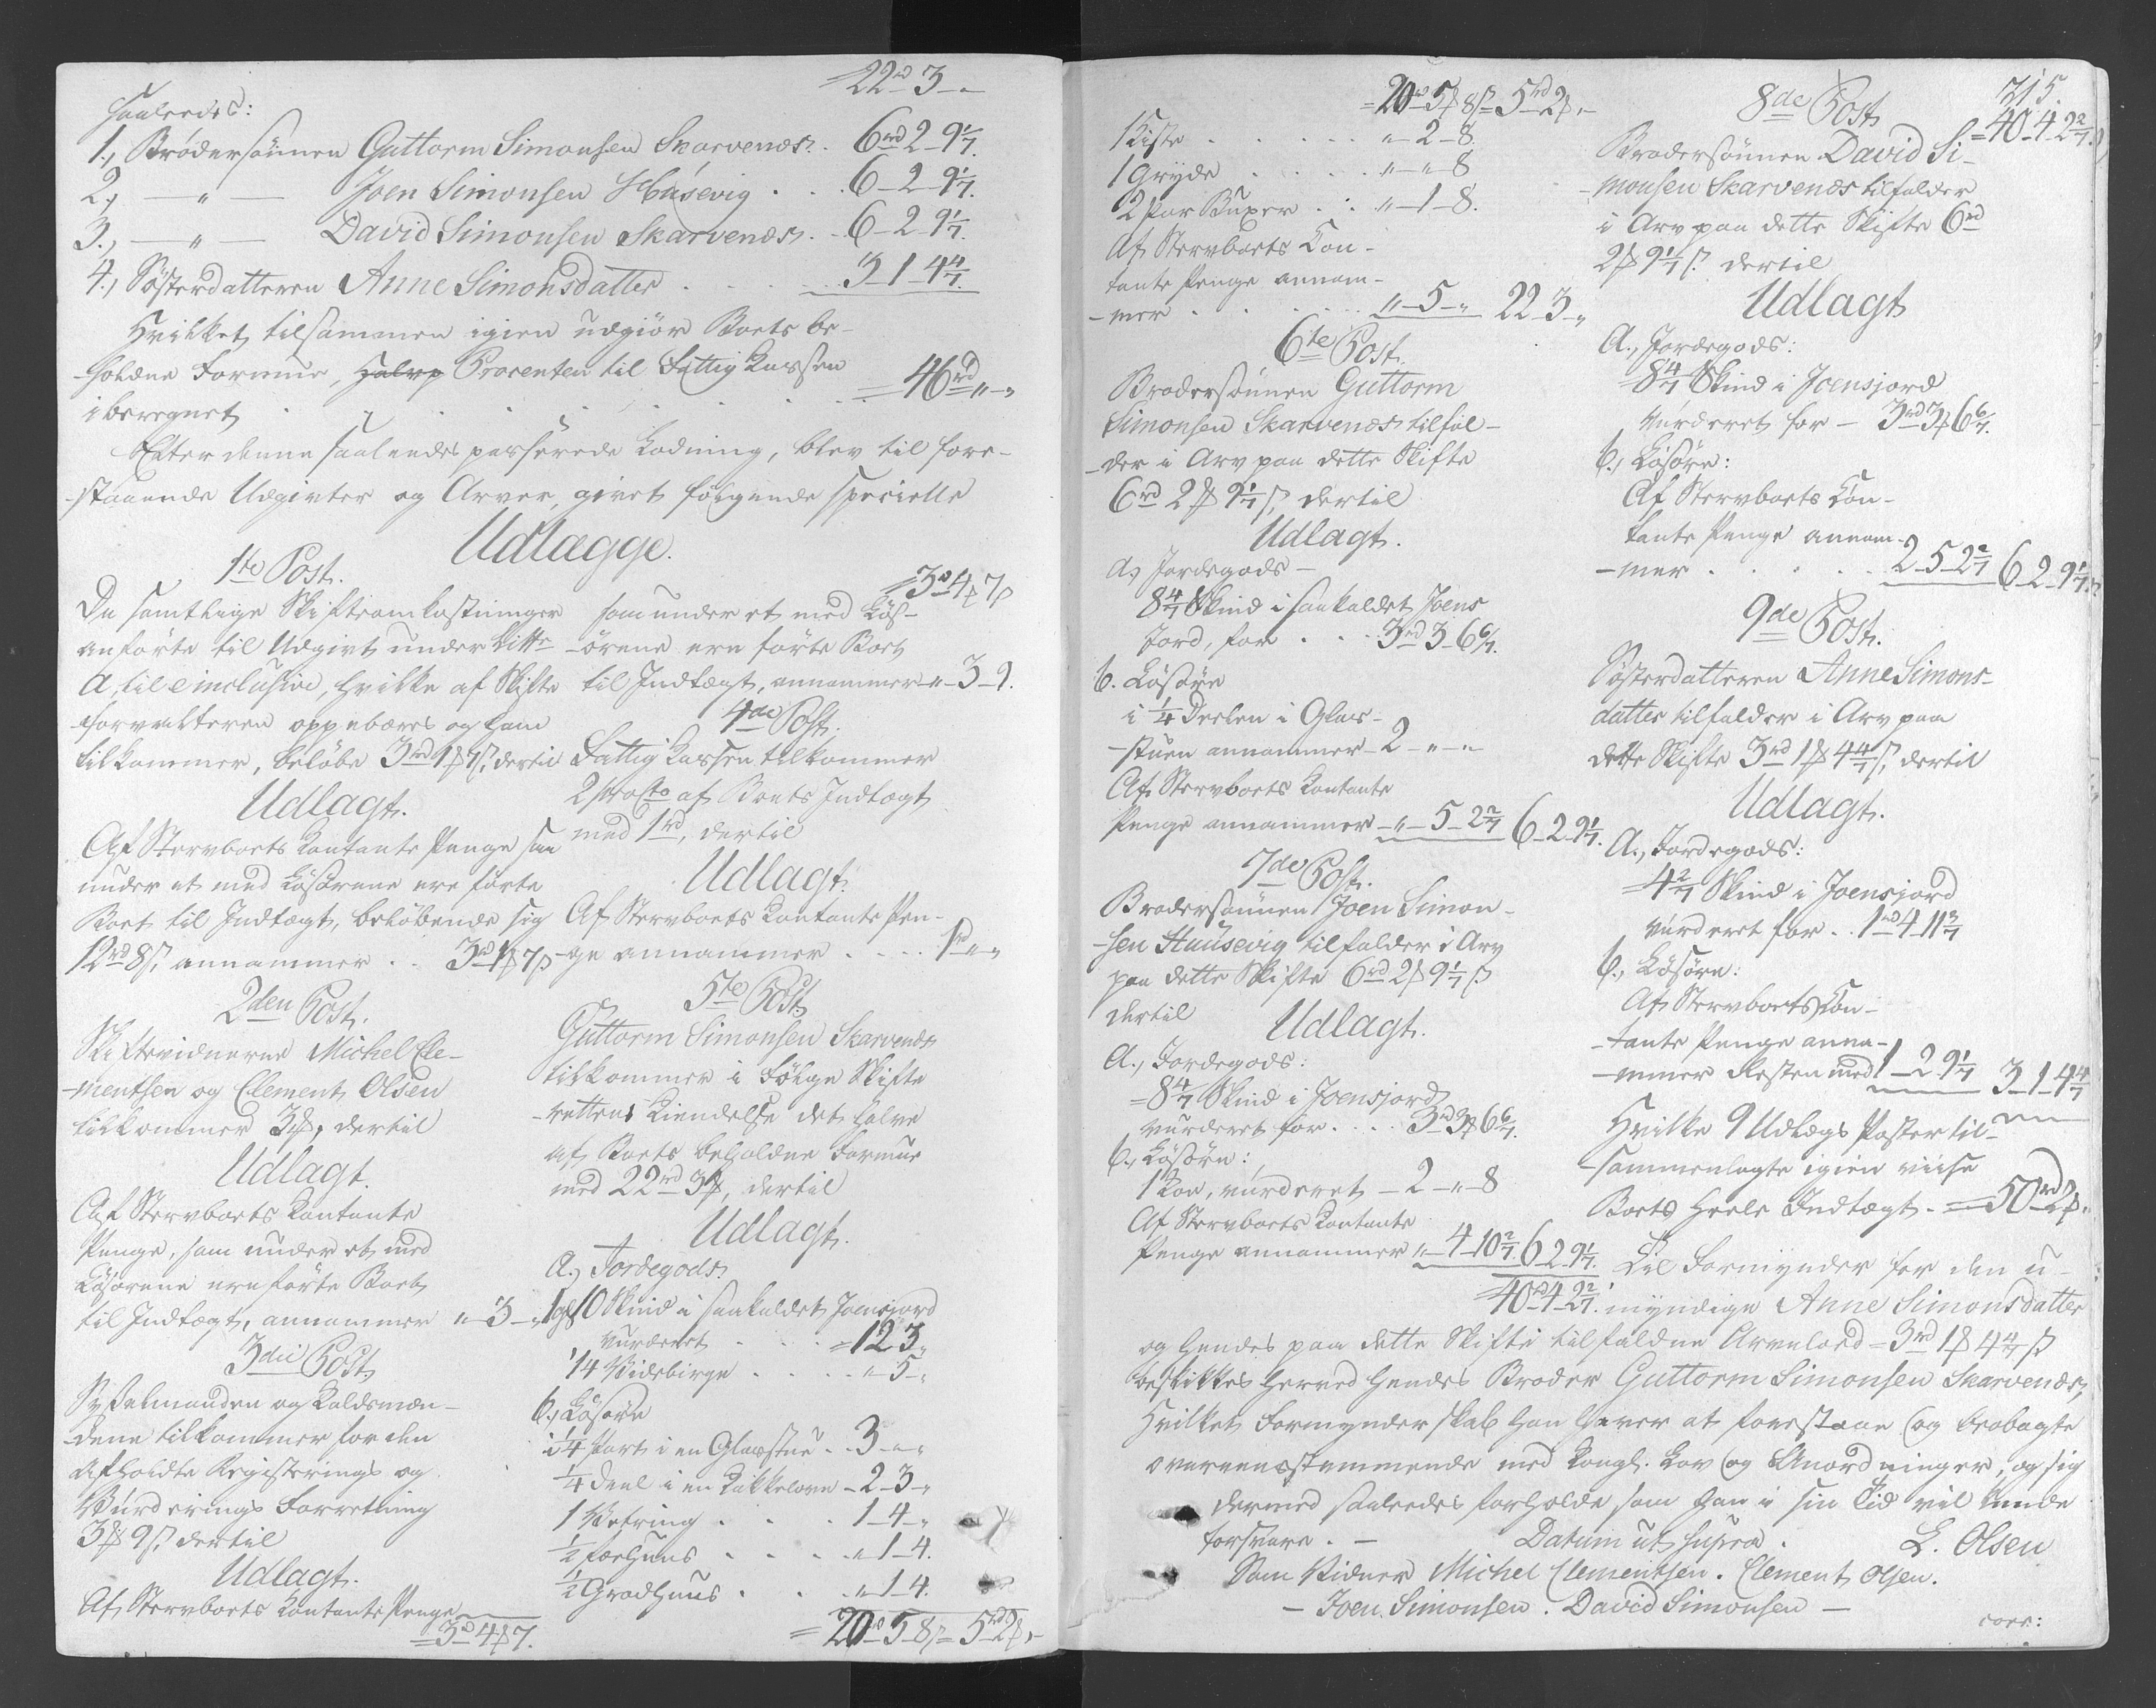 22rd 3 „
saaledes:
1., Brødersønnen Guttorm Simonsen Skarvenæs. . 6rd 2 9 1/7.
2., — „ — Joen Simonsen Húsevig . . 6 – 2 – 9 1/7.
3., — „ — David Simonsen Skarvenæs. . 6 – 2 – 9 1/7.
4., Søsterdatteren Anne Simonsdatter . . . . 3 1 4 4/7.
Hvilket tilsammen igien udgiør Boets be-
holdne Formue, Procenten til Fattig Kassen
iberegnet . . . . . . . = 46rd „ „
Efter denne saaledes passerede Lodning, blev til fore-
staaende Udgivter og Arver, givet følgende specielle
Udlægge.
1te Post.
De samtlige Skifteomkostninger
anførte til Udgivt under Littr
A til e inclusive, hvilke af Skifte
forvalteren oppebæres og ham
tilkommer, beløbe 3rd 1ß 7s, dertil
Udlagt.
Af Stervboets Contante Penge som
under et med Løsørene ere førte
Boet til Indtægt, beløbende sig
12rd 8s, annammer . . 3rd 1ß 7s
2den Post.
Skiftevidnerne Michel Cle-
mentsen og Clement Olsen
tilkommer 3ß, dertil
Udlagt.
Af Stervboets Contante
Penge, som under et med
Løsørene ere førte Boet
til Indtægt, annammer „ – 3 – „
3die Post
Sysselmanden og Koldsmæn-
dene tilkommer for den
afholdte Registerings og
Vurderings Forretning
3ß 9s, dertil
Udlagt.
Af Stervboets Contante Penge
= 3rd 4ß 7.
= 3rd 4ß 7s
som under et med Løs-
ørene ere førte Boet
til Indtægt, annammer – „ – 3 – 9.
4de Post.
Fattig Kassen tilkommer
2 pro Cto af Boets Indtægt
med 1rd, dertil
Udlagt.
Af Stervboets Contante Pen-
ge annammer . . . . 1rd „ „
5te Post
Guttorm Simonsen Skarvenæs
tilkommer i Følge Skifte
rettens Kiendelse det halve
af Boets beholdne Formue
med 22rd 3ß, dertil
Udlagt.
a., Jordegods.
1 gl 10 Skind i saakaldet Joensjord
vurderet . . . = 12 3 „
14 . . . „ – 5 – „
b., Løsøre
i 1/4 Part i en Glasstue . . 3 – „ – „
1/4 Deel i en Kakkelovn – 2 – 3 – „
1 . . . 1 – 4 – „
1/2 . . . „ 1 – 4.
1/2 . . . „ 1 – 4.
= 20rd 5 – 8s = 5rd 2ß „
= 20rd 5ß 8s = 5rd 2ß „
1 Kiste . . . . . „ – 2 – 8.
1 Gryde . . . . „ – „ – 8
2 Par Buxer . . „ – 1 – 8.
Af Stervboets Con-
tante Penge annam-
mer . . . . . „ – 5 – „ 22 – 3 – „
6te Post.
Brodersønnen Guttorm
Simonsen Skarvenæs tilfal-
der i Arv paa dette Skifte
6rd 2ß 9 1/7 s, dertil
Udlagt.
a., Jordegods –
8 4/7 Skind i saakaldet Joens
Jord, for . . . 3rd 3 – 6 6/7.
b. Løsøre
i 1/4 Deelen i Glas-
stuen annammer – 2 – „ – „
Af Stervboets Contante
Penge annammer – „ – 5 – 2 2/7 6 – 2 – 9 1/7.
7de Post.
Brodersønnen Joen Simon-
sen Huusevig tilfalder i Arv
paa dette Skifte 6rd 2ß 9 1/7 s
dertil
Udlagt.
a., Jordegods:
= 8 4/7 Skind i Joensjord
vurderet for . . . . 3rd 3ß 6 6/7.
b., Løsøre:
1 Koe, vurderet – 2 – „ – 8
Af Stervboets Contante
Penge annammer „ – 4 – 10 2/7. 6 2 9 1/7.
= 40rd 4 2 2/7.
315.
8de Post
= 40 – 4 – 2 2/7.
Brodersønnen David Si-
monsen Skarvenæs tilfalder
i Arv paa dette Skifte 6rd
2ß 9 1/7 s. dertil
Udlagt
a., Jordegods:
= 8 4/7 Skind i Joensjord
vurderet for – 3rd 3ß 6 6/7.
b., Løsøre:
Af Stervboets Con-
tante Penge annam-
mer . . . . . 2 – 5 – 2 2/7 6 – 2 – 9 1/7.
9de Post.
Søsterdatteren Anne Simons-
datter tilfalder i Arv paa
dette Skifte 3rd 1ß 4 4/7 s, dertil
Udlagt.
a., Jordegods:
= 4 2/7 Skind i Joensjord
vurderet for . . 1rd 4 11 3/7
b., Løsøre:
Af Stervboets Con-
tante Penge anna-
mmer Resten med 1 – 2 9 1/7 3 – 1 – 4 4/7
Hvilke 9 Udlægs Poster til-
sammenlagte igien viise
Boets heele Indtægt. = 50rd 2ß „
Til Formynder for den u-
myndige Anne Simonsdatter
og hendes paa dette Skifte tilfaldne Arvelod = 3rd 1ß 4 4/7 s
beskikkes herved hendes Broder Guttorm Simonsen Skarvenæs,
hvilket Formynderskab han haver at forestaae og beobagte
overeensstemmende med Kongl. Lov og Anordninger, og sig
dermed saaledes forholde som han i sin Tid vil kunde
forsvare. – Datum ut supra. L. Olsen
Som Vidner Michel Clementsen. Clement Olsen.
– Joen Simonsen. David Simonsen –
corr: